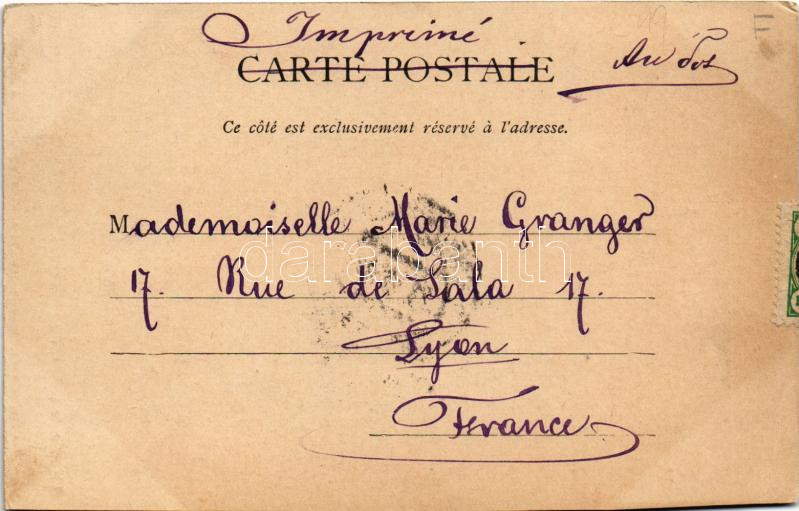 Imprimé
CARTE POSTALE
Au dos
Ce côté est exclusivement réservé à l'adresse.
Mademoiselle Marie Granger
darabanth
17. Rue de Sala 17.
Lyon
France